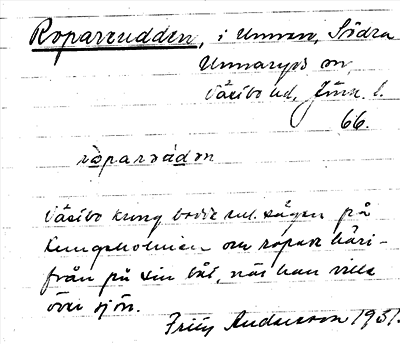 Ropareudden, i Unnen, Södra
Unnaryds sn,
Västbo hd, Jönk. l.
66.
ròpareúdən
Västbo kung bodde enl. sägen på
Kungsholmen och ropade häri-
från på sin båt, när han ville
över sjön.
Frity Andersson 1951.